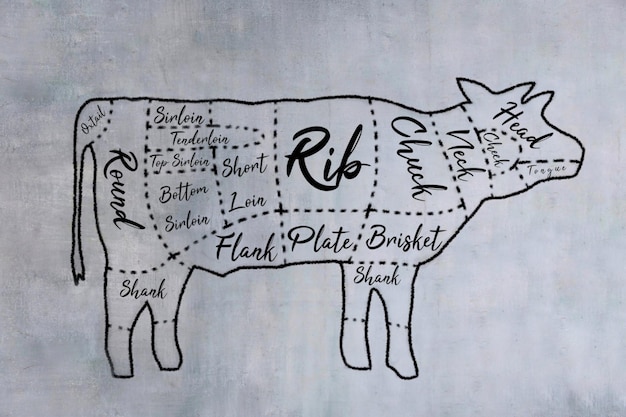 Oxtail
Round
Sirloin
Tenderloin
Top Sirloin
Bottom
Sirloin
Short
Loin
Rib
Chuck
Neck
Head
Cheek
Tongue
Flank
Plate
Brisket
Shank
Shank